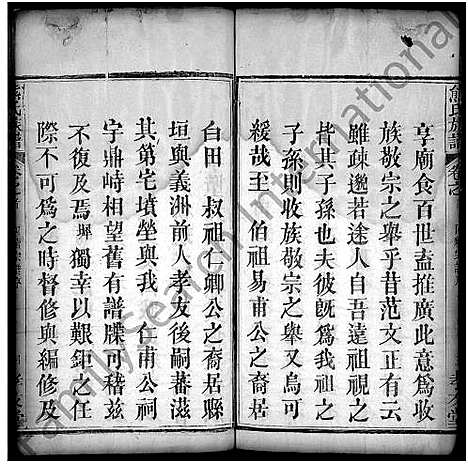 熊氏族譜
享廟食百世盍推廣此意爲收
族敬宗之舉乎昔范文正有云
雖疎邈若途人自吾遠祖視之
皆其子孫也夫彼旣爲我祖之
子孫則收族敬宗之舉又烏可
緩哉至 伯祖易甫公之裔居
白田 叔祖仁卿公之裔居縣
垣與義洲前人孝友後嗣蕃滋
其第宅墳塋與我 仁甫公祠
宇鼎峙相望舊有譜牒可稽兹
不復及焉墀獨幸以艱鉅之任
際不可爲之時督修與編修及
FamilySearch International